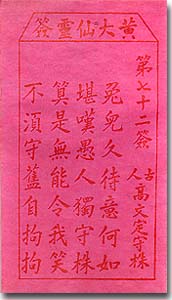 黃大仙靈簽
第七十二簽
古人高文定守株
兔兒久待意何如
堪嘆愚人獨守株
算是無能令我笑
不須守舊自拘拘